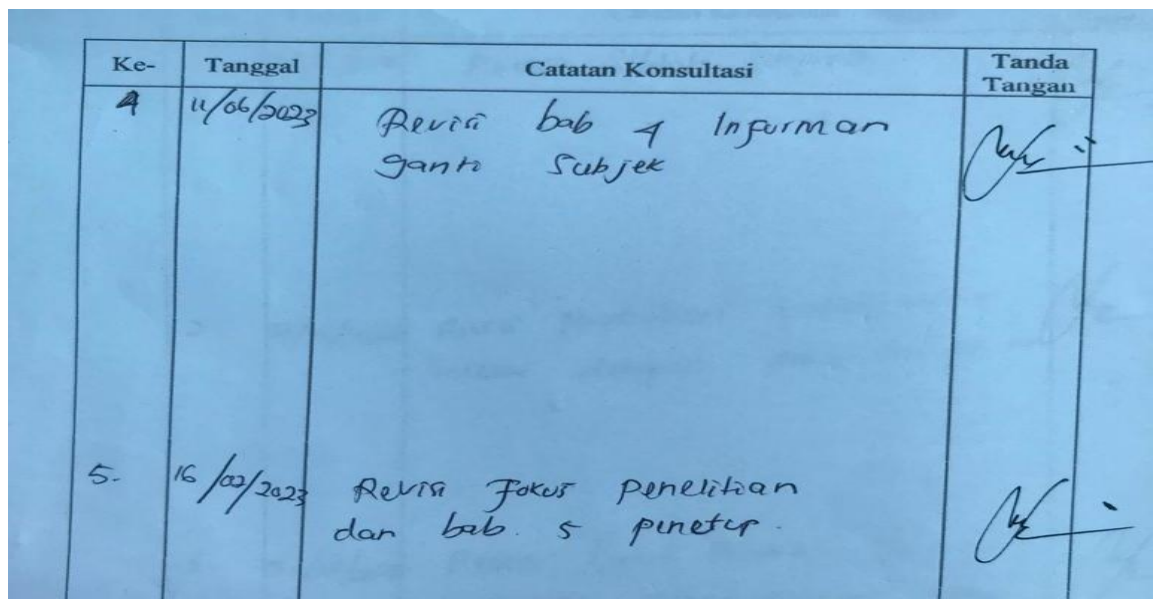 Ke- Tanggal Catatan Konsultasi Tanda Tangan
4 11/06/2023 Revisi bab 4 Informan
ganti Subjek
5. 16/02/2023 Revisi Fokus penelitian
dan bab. 5 penetup.